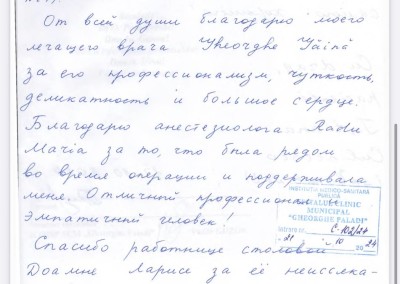 От всей души благодарю моего
лечащего врача Gheorghe Țăină
за его профессионализм, чуткость,
деликатность и большое сердце.
Благодарю анестезиолога Radu
Maria за то, что была рядом
во время операции и поддерживала
меня. Отличный профессионал и
эмпатичный человек!
INSTITUȚIA MEDICO-SANITARĂ
PUBLICĂ
SPITALUL CLINIC
MUNICIPAL
"GHEORGHE PALADI"
C-102/24
21 10 2024
Спасибо работнице столовой
Доамне Ларисе за её неиссяка-